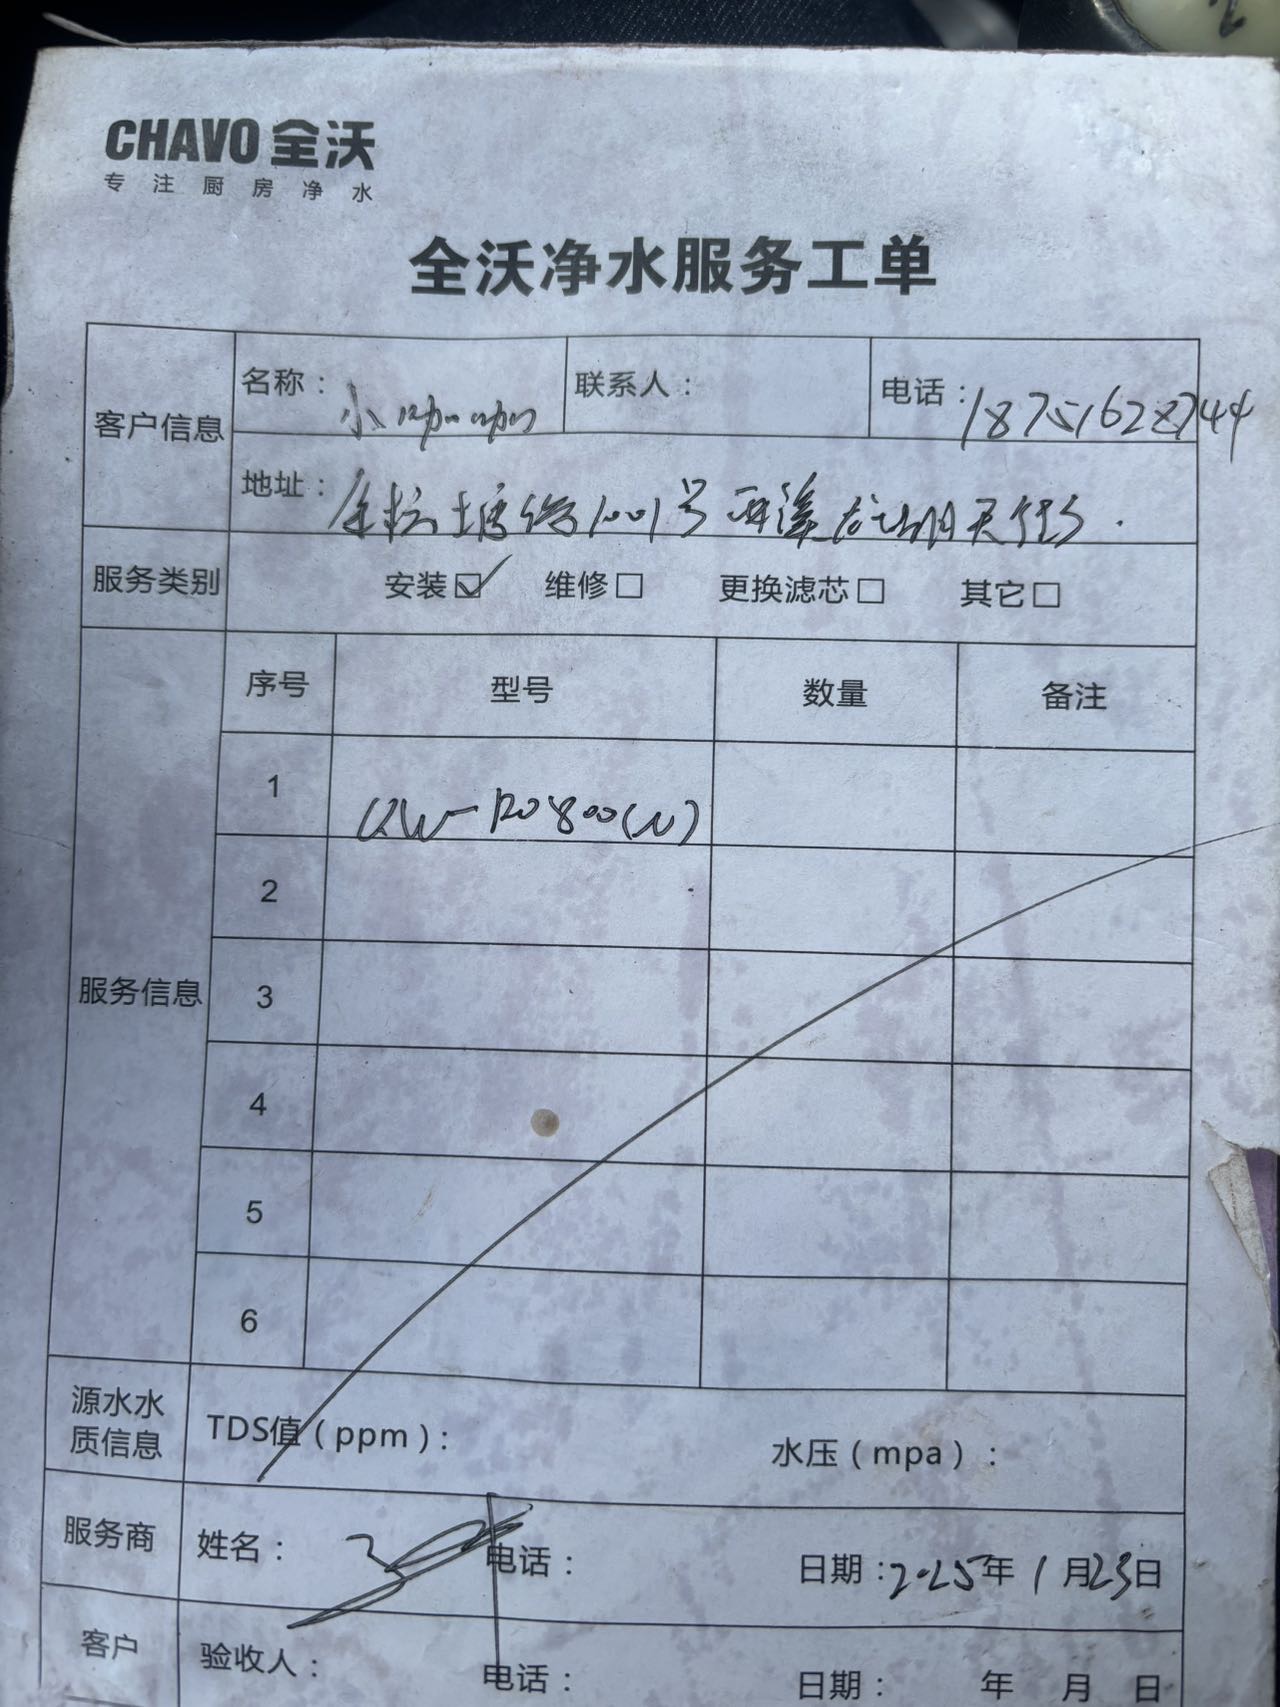 CHAVO 全沃
专注厨房净水
全沃净水服务工单
客户信息
名称：小咖咖 联系人： 电话：18751628744
地址：余杭塘路1001号西溪龙湖天街
服务类别 安装☑ 维修□ 更换滤芯□ 其它□
服务信息
序号 型号 数量 备注
1 QW-RO800(N)
2
3
4
5
6
源水水质信息 TDS值（ppm）： 水压（mpa）：
服务商 姓名： 电话： 日期：2025年1月23日
客户 验收人： 电话： 日期： 年 月 日